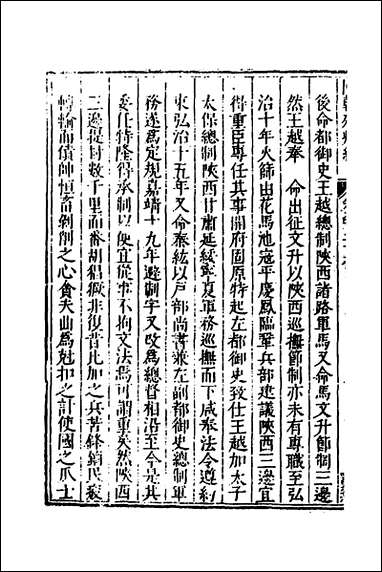 後命都御史王越總制陝西諸路軍馬又命馬文升節制三邊
然王越奉　命出征文升以陝西巡撫節制亦未有專職至弘
治十年火篩由花馬池寇平慶鳳臨鞏兵部建議陝西三邊宜
得重臣專任其事開府固原特起左都御史致仕王越加太子
太保總制陝西甘肅延綏寧夏軍務巡撫而下咸奉法令遵約
束弘治十五年又命秦紘以戶部尚書兼左副都御史總制軍
務遂爲定規嘉靖十九年避制字又改爲總督相沿至今是其
委任特隆得承制以便宜從事不拘文法爲可謂重矣然陝西
三邊提封數千里而番胡猖獗非復昔比加之兵苦鋒鏑民疲
轉輸而債帥恒畜剝削之心貪夫山爲尅扣之計使國之爪士